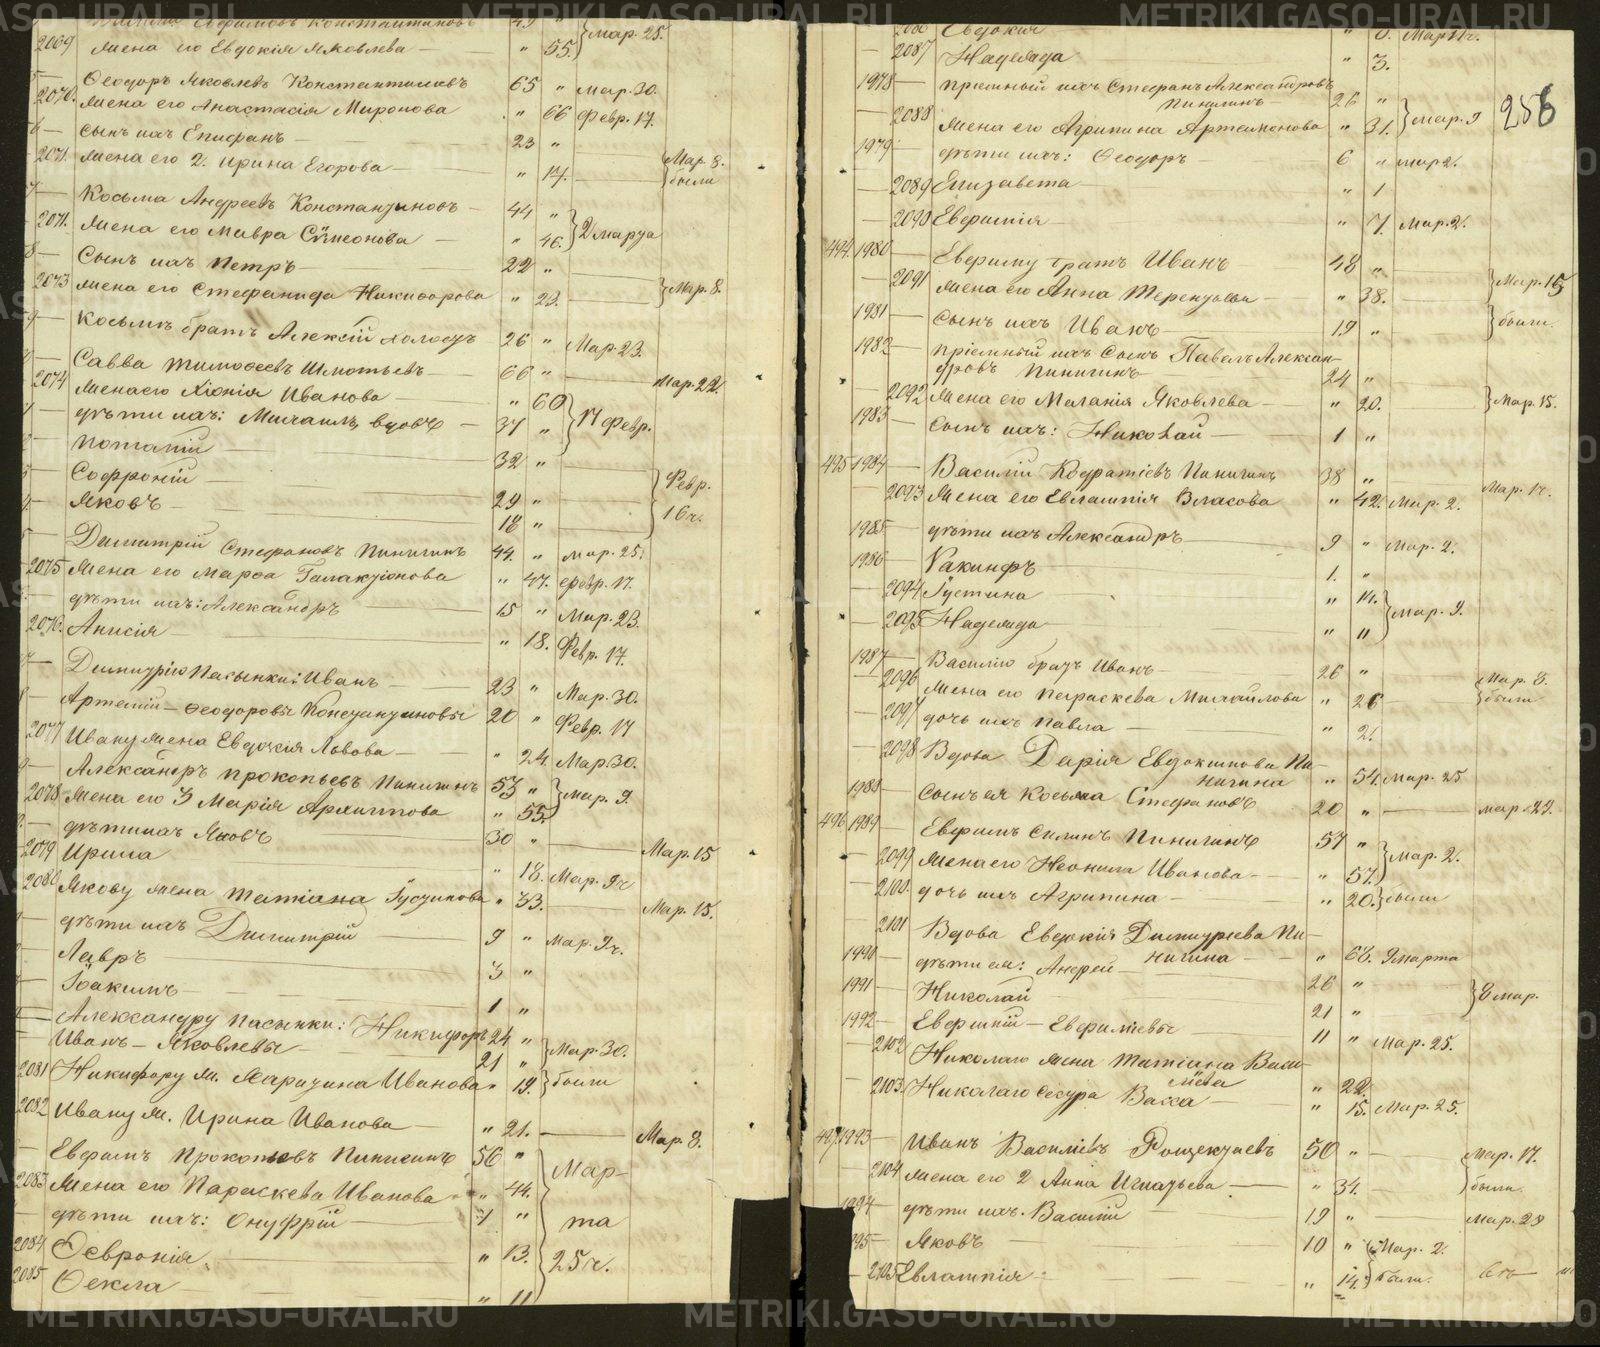 2069 жена его Евдокія Яковлева " 55. Мар. 25.
Ѳеодоръ Яковлевъ Константиновъ 65 " Мар. 30.
2070. жена его Анастасія Миронова " 66 Февр. 17.
сынъ ихъ Епифанъ 23 "
2071. жена его 2. Ирина Егорова " 17. Мар. 8. были
Косьма Андреевъ Константиновъ 44 "
2071. жена его Мавра Сѵмеонова " 46. 2 марта
Сынъ ихъ Петръ 22 "
2073 жена его Стефанида Никифорова " 23. Мар. 8.
Косьмы братъ Алексій холостъ 26 " Мар. 23.
Савва Тимоѳеевъ 66 " Мар. 22.
2074 жена его Хіонія Иванова " 60
дѣти ихъ: Михаилъ, вдовъ 37 " 17 Февр.
Потапій 32 "
Софроній 29 " Февр.
Яковъ 18 " 16 ч.
Димитрій Стефановъ Пинигинъ 44. " Мар. 25.
2075 жена его Марѳа Галактіонова " 47. Февр. 17.
дѣти ихъ: Александръ 15 " Мар. 23.
2076. Анисія " 18. Февр. 17.
Димитрію Пасынки: Иванъ 23 " Мар. 30.
Артемій – Ѳеодоровы Константиновы 20 " Февр. 17
2077 Ивану жена Евдокія Львова " 24 Мар. 30.
Александръ Прокопьевъ Пинигинъ 53 "
2078 жена его 3 Марія Архиппова " 55. Мар. 9.
дѣти ихъ Яковъ 30 " Мар. 15
2079 Ирина " 18. Мар. 9 ч
2080 Якову жена Татіана Іустинова " 33. Мар. 15.
дѣти ихъ Димитрій 9 " Мар. 9 ч.
Лавръ 3 "
Іоакимъ 1 "
Александру пасынки: Никифоръ 24 "
Иванъ – Яковлевы 21 " Мар. 30.
2081 Никифору ж. Харитина Иванова " 19. были
2082 Ивану ж. Ирина Иванова " 21. Мар. 8.
Ефимъ Прокопьевъ Пинигинъ 56 " Мар-
2083 жена его Параскева Иванова " 44.
дѣти ихъ: Онуфрій 7 " та
2084 Ѳевронія " 13. 25 ч.
2085 Ѳекла " 11
2086 Евдокія
2087 Надежда " 3.
1978 пріемный ихъ Стефанъ Александровъ
Пинигинъ 26 "
2088 жена его Агрипина Артамонова " 31. Мар. 9
256
1979 дѣти ихъ: Ѳеодоръ 6 " Мар 2.
2089 Елизавета " 1
2090 Евфимія " 7. Мар. 2.
494. 1980 Ефиму братъ Иванъ 48 "
2091 жена его Анна Терентьева " 38. Мар. 15
1981 Сынъ ихъ Иванъ 19 " были.
1982 Пріемный ихъ Сынъ Павелъ Алексан-
дровъ Пинигинъ 24 "
2092 жена его Меланія Яковлева " 20. Мар. 15.
1983 Сынъ ихъ: Николай 1 "
495 1984 Василій Кодратіевъ Пинигинъ 38 "
2093 жена его Евлампія Власова " 42. Мар. 2.
1985 дѣти ихъ Александръ 9 " Мар. 2.
1986 Іакинфъ 1. "
2094 Іустина " 14.
2095 Надежда " 11 Мар. 9.
1987 Василію братъ Иванъ 26 " Мар. 8.
2096 жена его Параскева Михайлова " 26 были
2097 дочь ихъ Павла " 2.
2098 Вдова Дарія Евдокимова Пи-
нигина " 54. Мар. 25
1988 Сынъ ея Косьма Стефановъ 20 " мар. 22.
496 1989 Ефимъ Силинъ Пинигинъ 57 "
2099 жена его Неонила Иванова " 57. Мар. 2.
2100. дочь ихъ Агрипина " 20. были
2101 Вдова Евдокія Димитріева Пи-
нигина " 68. 9 марта
1990 дѣти ея: Андрей 26 "
1991 Николай 21 " 8 мар.
1992 Евфимій – Евфиміевы 11 " Мар. 25.
2102 Николаю жена Татіана Васи-
ліева " 22.
2103. Николаю сестра Васса " 15. Мар. 25.
497 1993 Иванъ Василіевъ 50 " Мар. 17.
2104 жена его 2 Анна Игнатьева " 34. были.
1994 дѣти ихъ. Василій 19 " Мар. 28
1995 Яковъ 10 " Мар. 2.
2105 Евлампія " 14. были.
METRIKI.GASO-URAL.RU